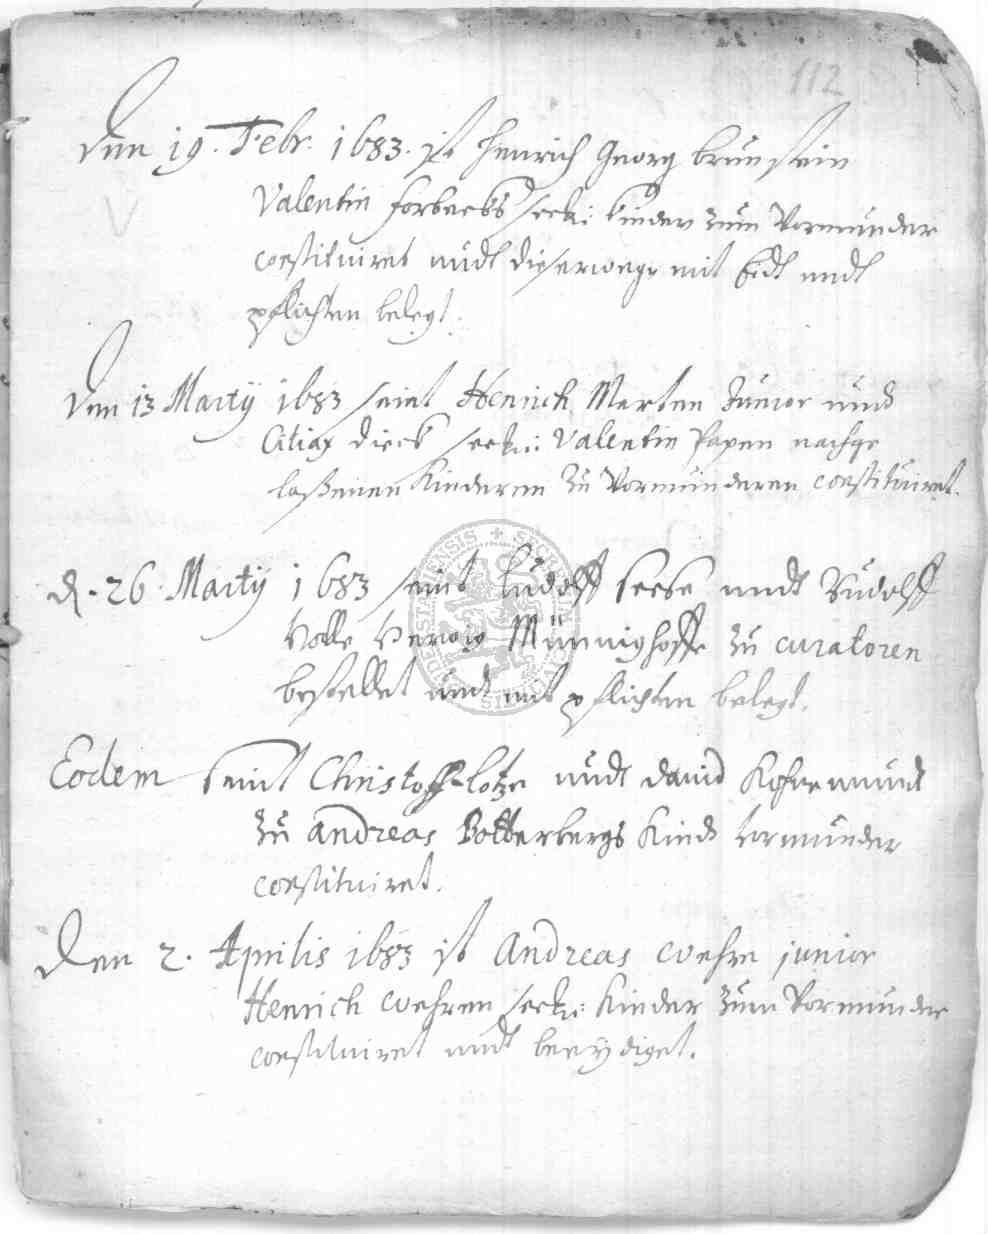 112
Den 19. Febr. 1683. ist Henrich Georg brünstein
Valentin forbecks seel: Kinder zum Vormünder
constituiret undt dieserwege mit Eidt undt
pflichten belegt.
Den 13 Martij 1683 seint Henrich Merten Junior und
Citiax Dieck seel: Valentin Papen nachge
laßenen Kinderen zu Vormünderen constituiret.
d. 26 Martij 1683 seint Ludolff seese undt Rudolff
Volle Herwig Münnighoffe zu curatoren
bestellet undt mit pflichten belegt.
Eodem seint Christoff lotze undt david
zu Andreas Botterbergs Kinds vormünder
constituiret.
Den 2. Aprilis 1683 ist Andreas Wehre junior
Henrich Wehren seel: Kinder zum Vormünder
constituiret undt beeydiget.